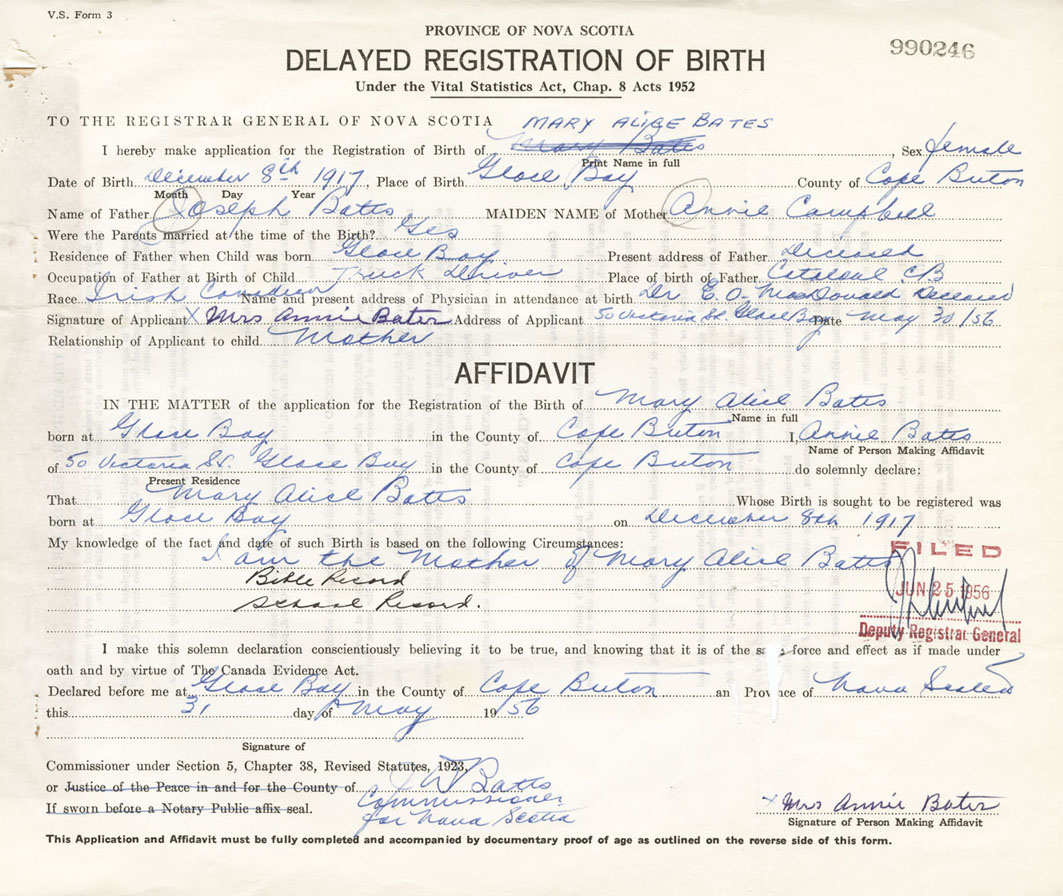 V.S. Form 3
PROVINCE OF NOVA SCOTIA
990246
DELAYED REGISTRATION OF BIRTH
Under the Vital Statistics Act, Chap. 8 Acts 1952
TO THE REGISTRAR GENERAL OF NOVA SCOTIA MARY ALICE BATES
I hereby make application for the Registration of Birth of Mary Bates, Sex female
Print Name in full
Date of Birth December 8th 1917, Place of Birth Glace Bay County of Cape Breton
Month Day Year
Name of Father Joseph Bates MAIDEN NAME of Mother Annie Campbell
Were the Parents married at the time of the Birth? Yes
Residence of Father when Child was born Glace Bay Present address of Father Deceased
Occupation of Father at Birth of Child Truck Driver Place of birth of Father Catalone CB
Race Irish Canadian Name and present address of Physician in attendance at birth Dr E.O. MacDonald Deceased
Signature of Applicant X Mrs Annie Bates Address of Applicant 50 Victoria St. Glace Bay Date May 30/56
Relationship of Applicant to child Mother
AFFIDAVIT
IN THE MATTER of the application for the Registration of the Birth of Mary Alice Bates
Name in full
born at Glace Bay in the County of Cape Breton I, Annie Bates
Name of Person Making Affidavit
of 50 Victoria St. Glace Bay in the County of Cape Breton do solemnly declare:
Present Residence
That Mary Alice Bates Whose Birth is sought to be registered was
born at Glace Bay on December 8th 1917
My knowledge of the fact and date of such Birth is based on the following Circumstances:
I am the Mother of Mary Alice Bates
FILED
Bible Record
JUN 25 1956
School Record.
Deputy Registrar General
I make this solemn declaration conscientiously believing it to be true, and knowing that it is of the force and effect as if made under
oath and by virtue of The Canada Evidence Act.
Declared before me at Glace Bay in the County of Cape Breton an Province of Nova Scotia
this 31 day of May 1956
Signature of
Commissioner under Section 5, Chapter 38, Revised Statutes, 1923,
or Justice of the Peace in and for the County of J W Batts
If sworn before a Notary Public affix seal. Commissioner
for Nova Scotia
X Mrs Annie Bates
Signature of Person Making Affidavit
This Application and Affidavit must be fully completed and accompanied by documentary proof of age as outlined on the reverse side of this form.